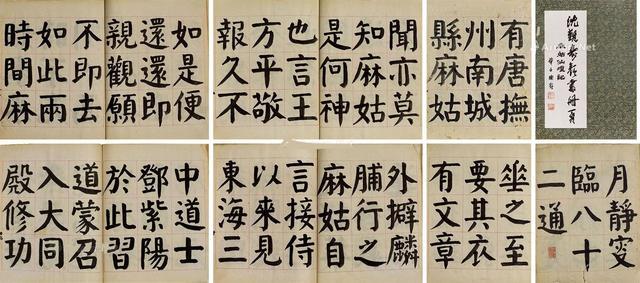 沈觀壽顏書冊頁
麻姑仙壇記
有唐撫
州南城
縣麻姑
聞亦莫
知麻姑
是何神
也言王
方平敬
報久不
如是便
還還即
親觀願
不即去
如此兩
時間麻
月靜叜
臨八十
二通
垂之至
要其衣
有文章
外擗麟
脯行之
麻姑自
言接侍
以來見
東海三
中道士
鄧紫陽
於此習
道蒙召
入大同
殿修功